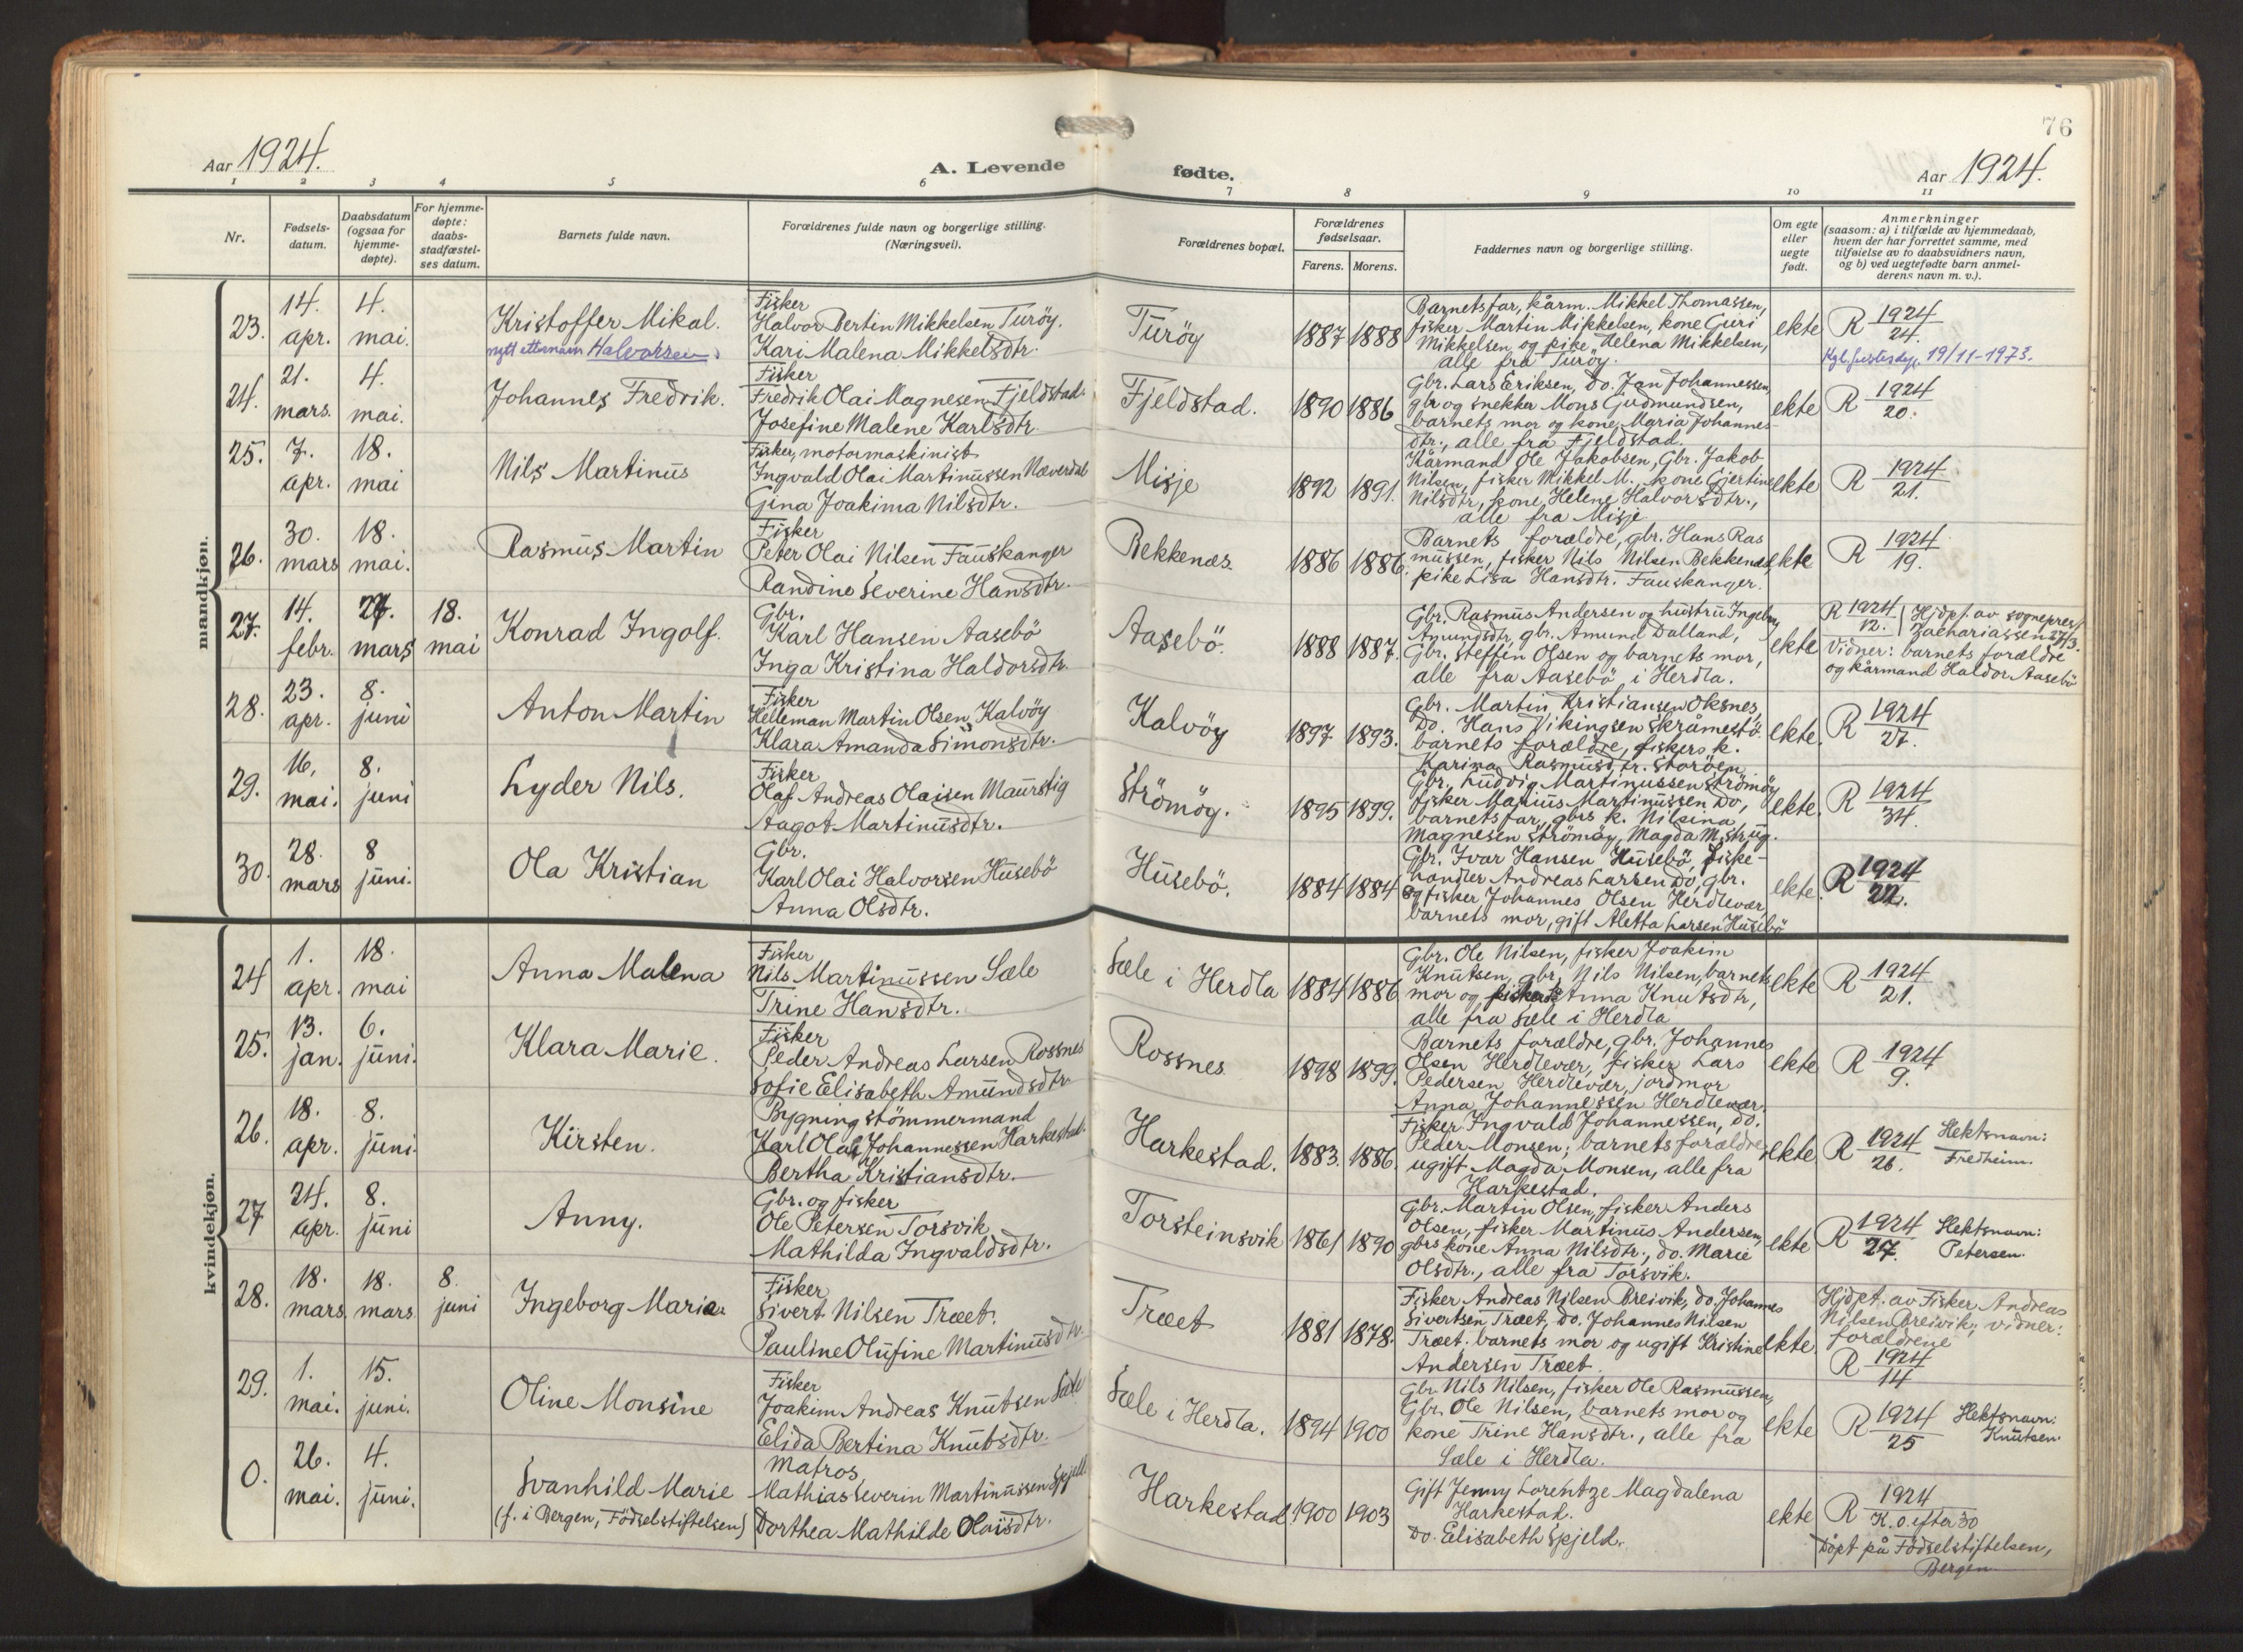 76
Aar 1924.
A. Levende fødte.
Aar 1924.
1 2 3 4 5 6 7 8 9 10 11
Nr.
Fødsels-
datum.
Daabsdatum
(ogsaa for
hjemme-
døpte).
For hjemme-
døpte:
daabs-
stadfæstel-
ses datum.
Barnets fulde navn.
Forældrenes fulde navn og borgerlige stilling.
(Næringsvei).
Forældrenes bopæl.
Forældrenes
fødselsaar.
Farens. Morens.
Faddernes navn og borgerlige stilling.
Om egte
eller
uegte
født.
Anmerkninger
(saasom: a) i tilfælde av hjemmedaab,
hvem der har forrettet samme, med
tilføielse av to daabsvidners navn,
og b) ved uegtefødte barn anmel-
derens navn m. v.).
mandkjøn.
23.
14.
apr.
4.
mai.
Kristoffer Mikal.
nytt etternavn Halvorsen.
Fisker
Halvor Bertin Mikkelsen Turöy.
Kari Malena Mikkelsdtr.
Turöy
1887 1888
Barnets far, kårm. Mikkel Thomassen,
fisker Martin Mikkelsen, kone Guri
Mikkelsen, og pike Helena Mikkelsen,
alle fra Turöy.
ekte
R 1924
24.
Kgl. just.dep. 19/11-1973.
24.
21.
mars.
4.
mai.
Johannes Fredrik.
Fisker
Fredrik Olai Magnesen Fjeldstad.
Josefine Malene Karlsdtr.
Fjeldstad.
1890 1886
Gbr. Lars Eriksen, do. Jan Johannessen,
gbr og snekker Mons Gudmundsen,
barnets mor og kone Maria Johannes-
dtr., alle fra Fjeldstad.
ekte
R 1924
20.
25.
7.
apr.
18.
mai
Nils Martinus
Fisker, motormaskinist
Ingvald Olai Martinussen Næverdal
Gina Joakima Nilsdtr.
Misje
1892 1891.
Kårmand Ole Jakobsen, Gbr. Jakob
Nilsen, fisker Mikkel M., kone Gjertine
Nilsdtr, kone Helene Halvorsdtr.,
alle fra Misje
ekte
R 1924
21.
26.
30.
mars
18.
mai.
Rasmus Martin
Fisker
Peter Olai Nilsen Fauskanger
Randine Severine Hansdtr.
Bekkenæs.
1886 1886.
Barnets forældre, gbr. Hans Ras
mussen, fisker Nils Nilsen Bekkenæs,
pike Lisa Hansdtr. Fauskanger.
ekte
R 1924
19.
27.
14.
febr.
mars
18.
mai
Konrad Ingolf.
Gbr.
Karl Hansen Aasebö
Inga Kristina Haldorsdtr.
Aasebö.
1888 1887.
Gbr. Rasmus Andersen og hustru Ingeborg
Amundsdtr, gbr. Amund Dalland,
Gbr. Steffen Olsen og barnets mor,
alle fra Aasebö i Herdla.
ekte
R 1924
12.
Hjdpt. av sogneprest
Zachariassen 27/3.
Vidner: barnets forældre
og kårmand Haldor Aasebö
28.
23.
apr.
8.
juni
Anton Martin
Fisker
Helleman Martin Olsen Kalvöy
Klara Amanda Simonsdtr.
Kalvöy
1897 1893.
Gbr. Martin Kristiansen Oksnes,
Do. Hans Vikingsen Skråmestö.
barnets forældre, fiskers k.
Karina Rasmusdtr. Storöen
ekte.
R 1924
27.
29.
16.
mai.
8.
juni
Lyder Nils.
Fisker
Olaf Andreas Olaisen Maurstig
Aagot Martinusdtr.
Strömöy.
1895 1899.
Gbr. Ludvig Martinussen Strömöy
fisker Marius Martinussen Do,
barnets far, gbrs k. Nilsina
Magnesen Strömöy, Magda M.
ekte.
R 1924
34.
30.
28.
mars
8
juni.
Ola Kristian
Gbr.
Karl Olai Halvorsen Husebö
Anna Olsdtr.
Husebö.
1884 1884
Gbr. Ivar Hansen Husebö, fiske-
handler Andreas Larsen Do, gbr.
og fisker Johannes Olsen Herdlevær
barnets mor, gift Aletta Larsen Husebö
ekte.
R 1924
kvindekjøn.
24
1.
apr.
18.
mai
Anna Malena
Fisker
Nils Martinussen Sæle
Trine Hansdtr.
Sæle i Herdla
1884 1886
Gbr. Ole Nilsen, fisker Joakim
Knutsen, gbr. Nils Nilsen, barnets
mor og Anna Knutsdtr,
alle fra Sæle i Herdla
ekte
R 1924
21.
25.
13.
jan.
6.
juni.
Klara Marie.
Fisker
Peder Andreas Larsen Rossnes
Sofie Elisabeth Amundsdtr.
Rossnes
1898 1899.
Barnets forældre, gbr. Johannes
Olsen Herdlevær, fisker Lars
Pedersen Herdlevær, jordmor
Anna Johannessen Herdlevær.
ekte
R 1924
9.
26.
18.
apr.
8.
juni.
Kirsten.
Bygningstömmermand
Karl Olai Johannessen Harkestad.
Bertha Kristiansdtr.
Harkestad.
1883. 1886.
Fisker Ingvald Johannessen, do.
Peder Monsen; barnets forældre,
ugift Magda Monsen, alle fra
Harkestad.
ekte
R 1924
26.
Slektsnavn:
Fredheim.
27
24.
apr.
8.
juni
Anny.
Gbr. og fisker
Ole Petersen Torsvik
Mathilda Ingvaldsdtr.
Torsteinsvik
1861 1890
Gbr. Martin Olsen, fisker Anders
Olsen, fisker Martinus Andersen,
gbrs kone Anna Nilsdtr., do. Marie
Olsdtr., alle fra Torsvik.
ekte
R 1924
27.
Slektsnavn:
Petersen.
28.
18.
mars.
18.
mars
8.
juni
Ingeborg Marie
Fisker
Sivert Nilsen Træet.
Pauline Olufine Martinusdtr.
Træet
1881 1878.
Fisker Andreas Nilsen Breivik, do. Johannes
Sivertsen Træet, Do. Johannes Nilsen
Træet; barnets mor og ugift Kristine
Andersen Træet.
ekte.
Hjdpt. av Fisker Andreas
Nilsen Breivik; vidner:
forældrene
R 1924
14
29.
1.
mai.
15.
juni.
Oline Monsine
Fisker
Joakim Andreas Knutsen Sæle
Elida Bertina Knutsdtr.
Sæle i Herdla.
1894 1900
Gbr. Nils Nilsen, fisker Ole Rasmussen,
Gbr. Ole Nilsen, barnets mor og
kone Trine Hansdtr., alle fra
Sæle i Herdla.
ekte
R 1924
25
Slektsnavn:
Knutsen.
0.
26.
mai.
4.
juni.
Svanhild Marie
(f. i Bergen, Födselstiftelsen)
Matros
Mathias Severin Martinussen Spjeld
Dorthea Mathilde Olaisdtr.
Harkestad
1900 1903
Gift Jenny Lorentze Magdalena
Harkestad.
Do. Elisabeth Spjeld.
ekte
R 1924
K. 0. efter 30
Döpt på Födselstiftelsen,
Bergen.